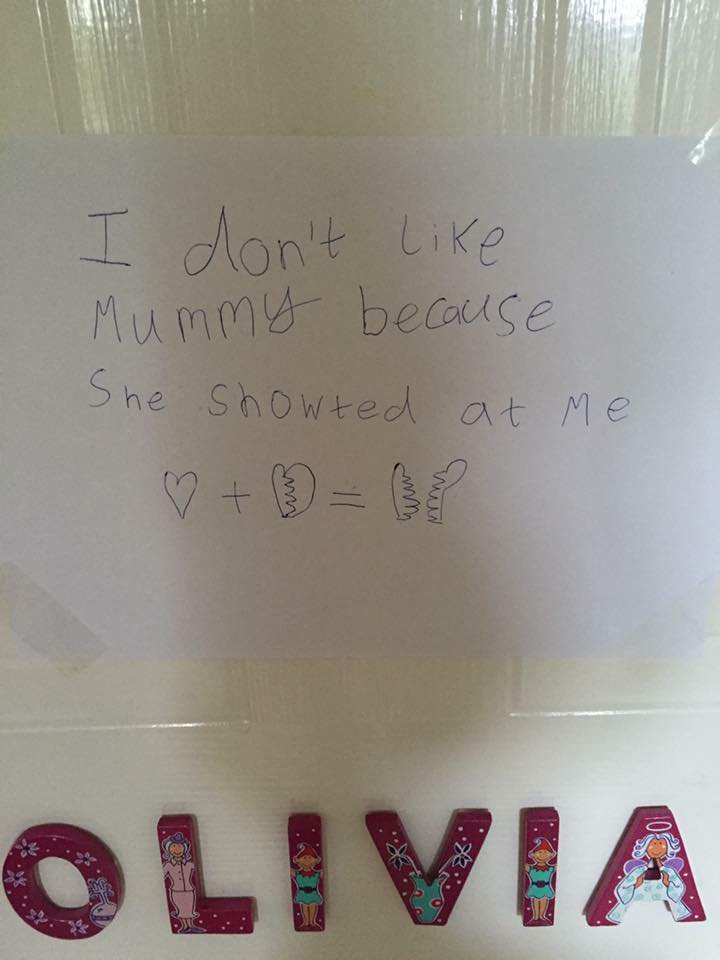 I don't like
Mummy because
She showted at me
+ =
OLIVIA